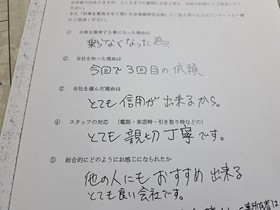 ① お車を処分する事になった理由は
乗らなくなった為
② 当社を知った理由は
今回で3回目の依頼、
③ 当社を選んだ理由は
とても信用が出来るから。
④ スタッフの対応(電話・来店時・引き取り時などの)
とても親切丁寧です。
⑤ 総合的にどのようにお感じになられたか
他の人にもおすすめ出来る
とても良い会社です。